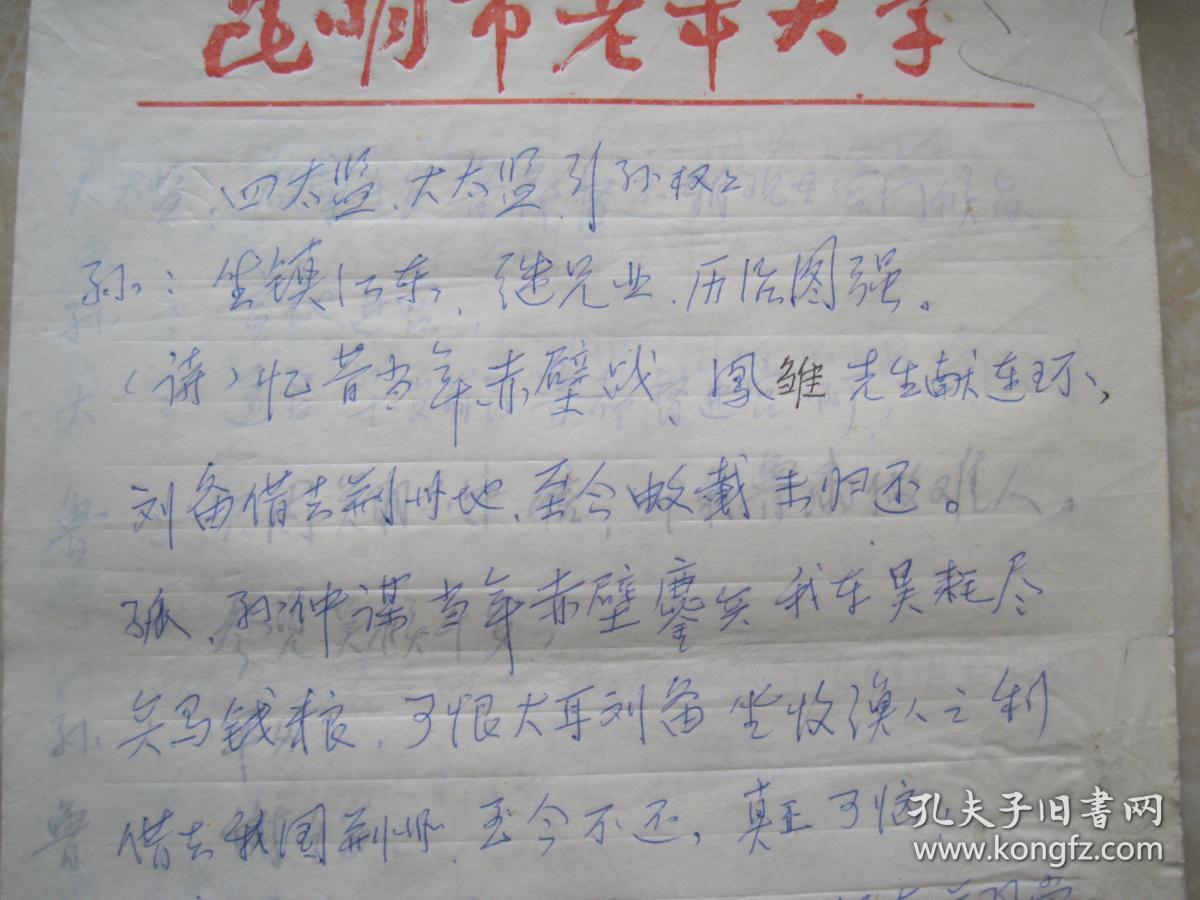 昆明市老年大学
四太监、大太监引孙权上
孙：坐镇江东，继兄业、历治图强。
（诗）忆昔当年赤壁战，凤雏先生献连环，
刘备借去荆州地，至今数载未归还。
孤、孙仲谋当年赤壁鏖兵我东吴耗尽
兵马钱粮，可恨大耳刘备坐收渔人之利
借去我国荆州，至今不还，真正可恼
孔夫子旧书网
www.kongfz.com